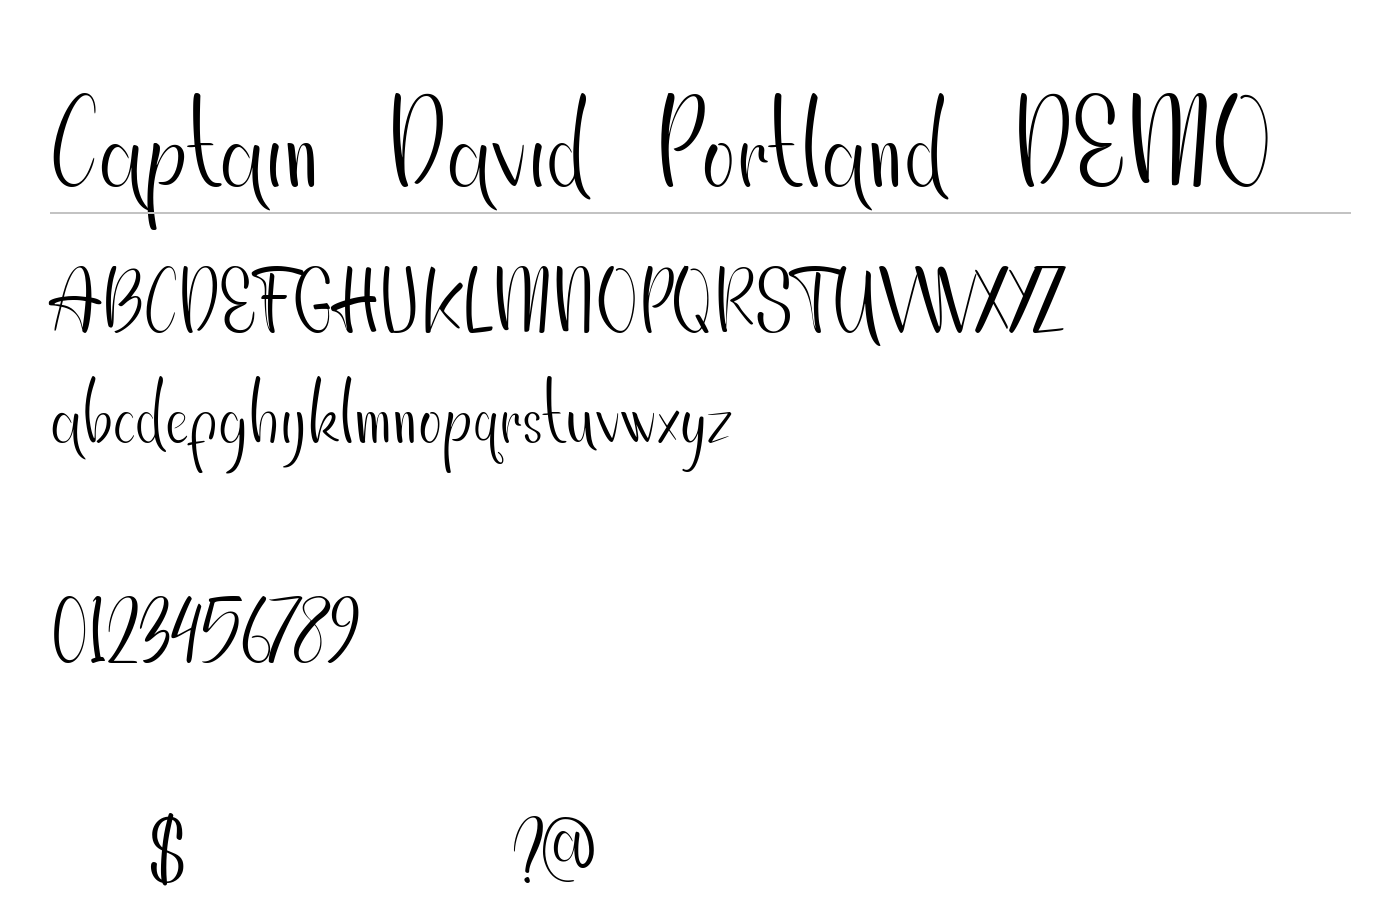 Captain David Portland DEMO
ABCDEFGHIJKLMNOPQRSTUVWXYZ
abcdefghijklmnopqrstuvwxyz
0123456789
$ ?@